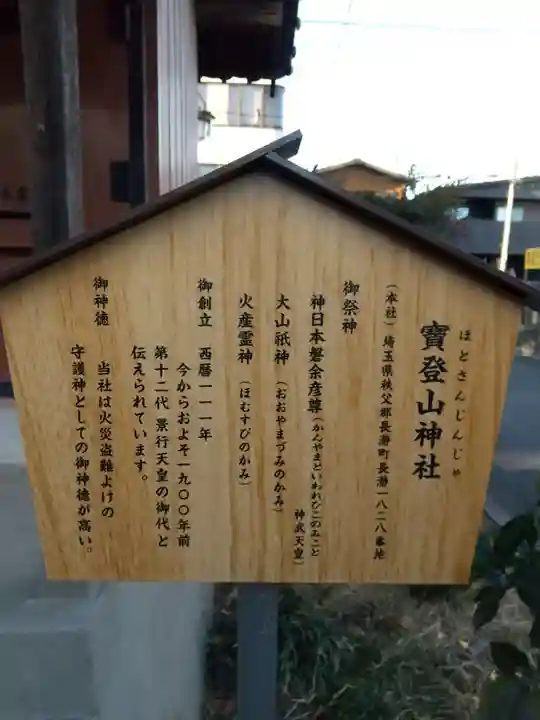 ほとさんじんじゃ
寶登山神社
(本社)埼玉県秩父郡長瀞町長瀞一八二八番地
御祭神
神日本磐余彦尊(かんやまといわれひこのみこと
神武天皇)
大山祇神(おおやまづみのかみ)
火産霊神(ほむすびのかみ)
御創立 西暦一一一年
今からおよそ一九〇〇年前
第十二代 景行天皇の御代と
伝えられています。
御神徳 当社は火災盗難よけの
守護神としての御神徳が高い。